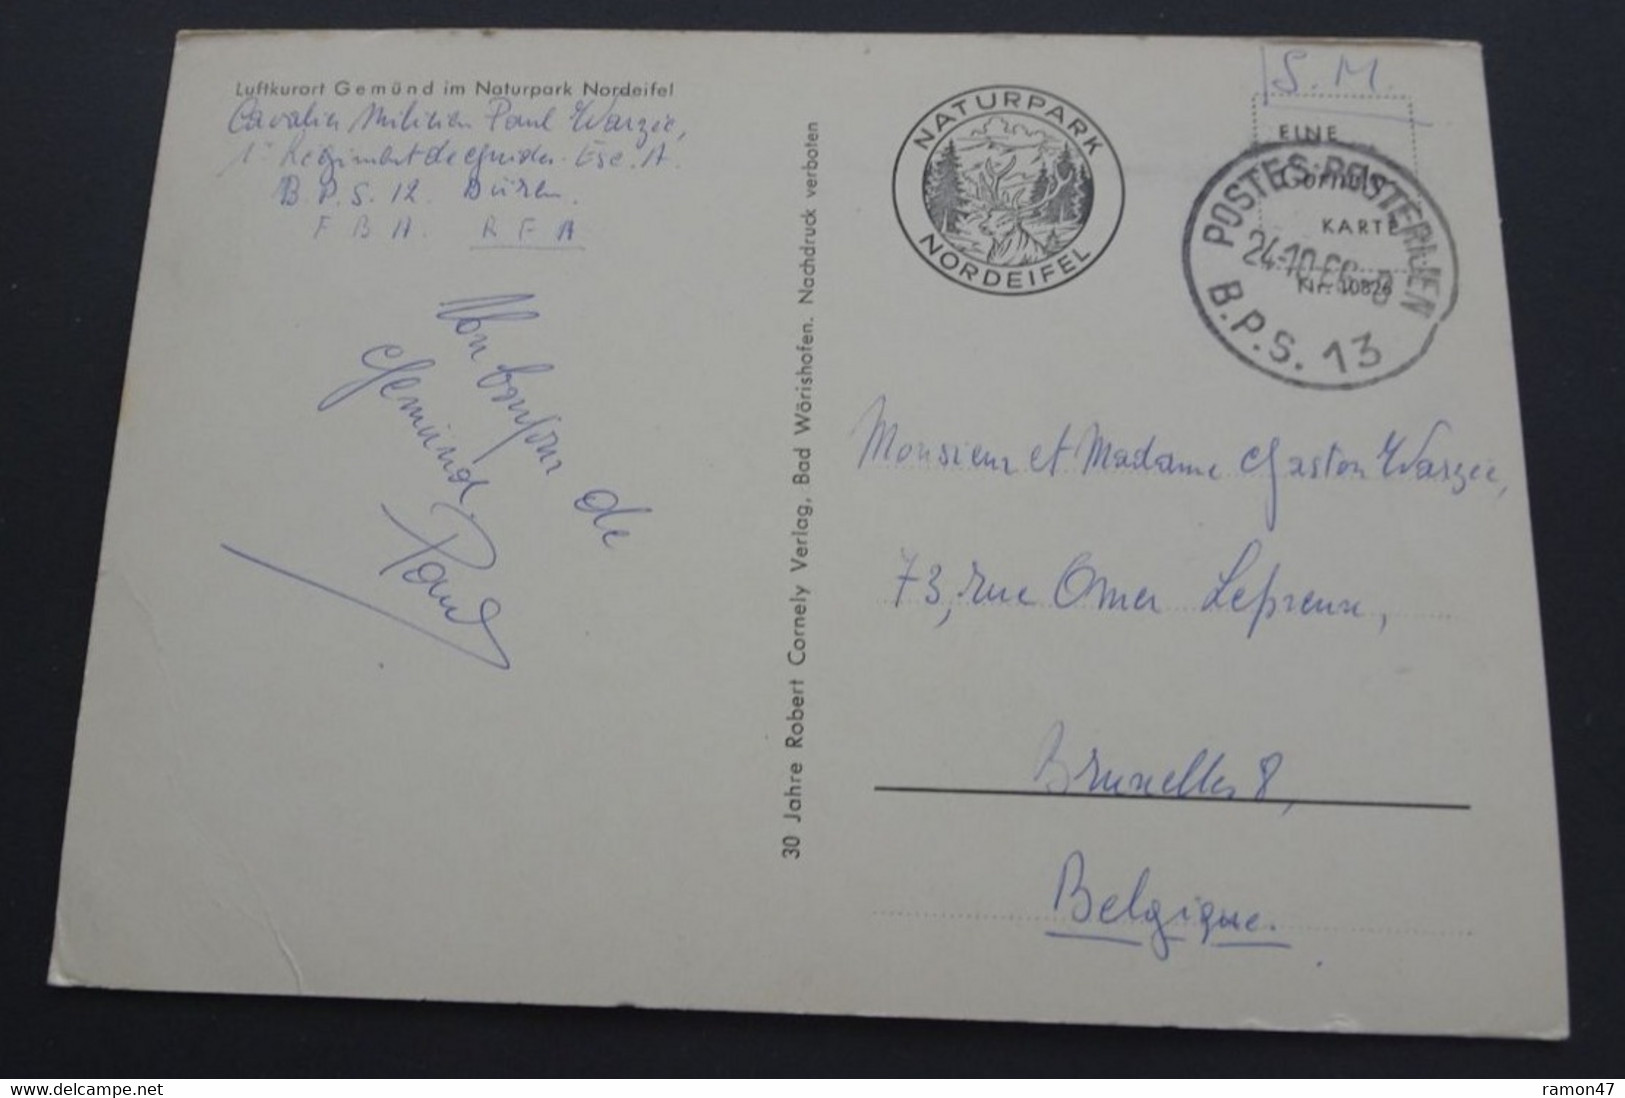 Luftkurort Gemünd im Naturpark Nordeifel
Cavalier Milicien Paul Warzée,
1er Régiment de Guides - Esc. A.
B. P. S. 12. Düren.
F B A. R F A
Mon bonjour de
Gemünd.
Paul
30 Jahre Robert Cornely Verlag, Bad Wörishofen. Nachdruck verboten
NATURPARK
NORDEIFEL
S. M.
EINE
Cornely
KARTE
Nr. 10826
POSTES-POSTERIJEN
24-10 66
B.P.S. 13
Monsieur et Madame Gaston Warzée,
73, rue Omer Lepreux,
Bruxelles 8,
Belgique.
www.delcampe.net
ramon47